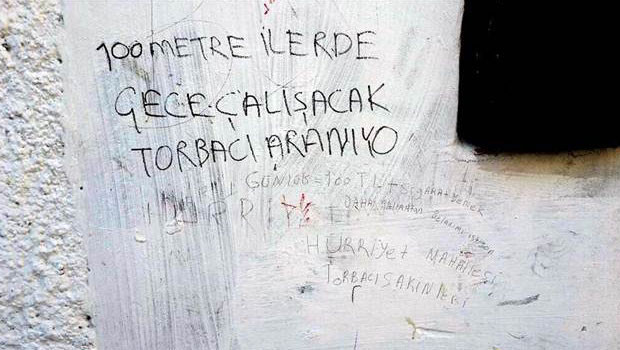 100 METRE İLERDE
GECE ÇALIŞACAK
TORBACI ARANIYO
GÜNLÜK=100 TL+SİGARA+YEMEK
HÜRRİYET MAHALLESİ
TORBACI SAKİNLERİ